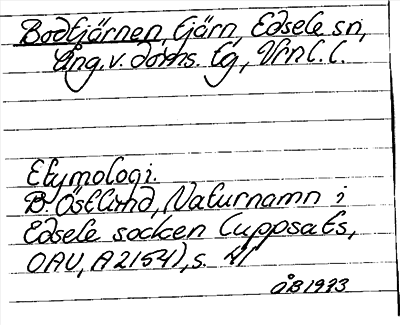 Bodtjärnen, tjärn, Edsele sn,
Ång. v. doms. tg, Vrnl. l.
Etymologi.
B Östlund, Naturnamn i
Edsele socken (uppsats,
OAU, A2154), s. 41
ÅB 1973